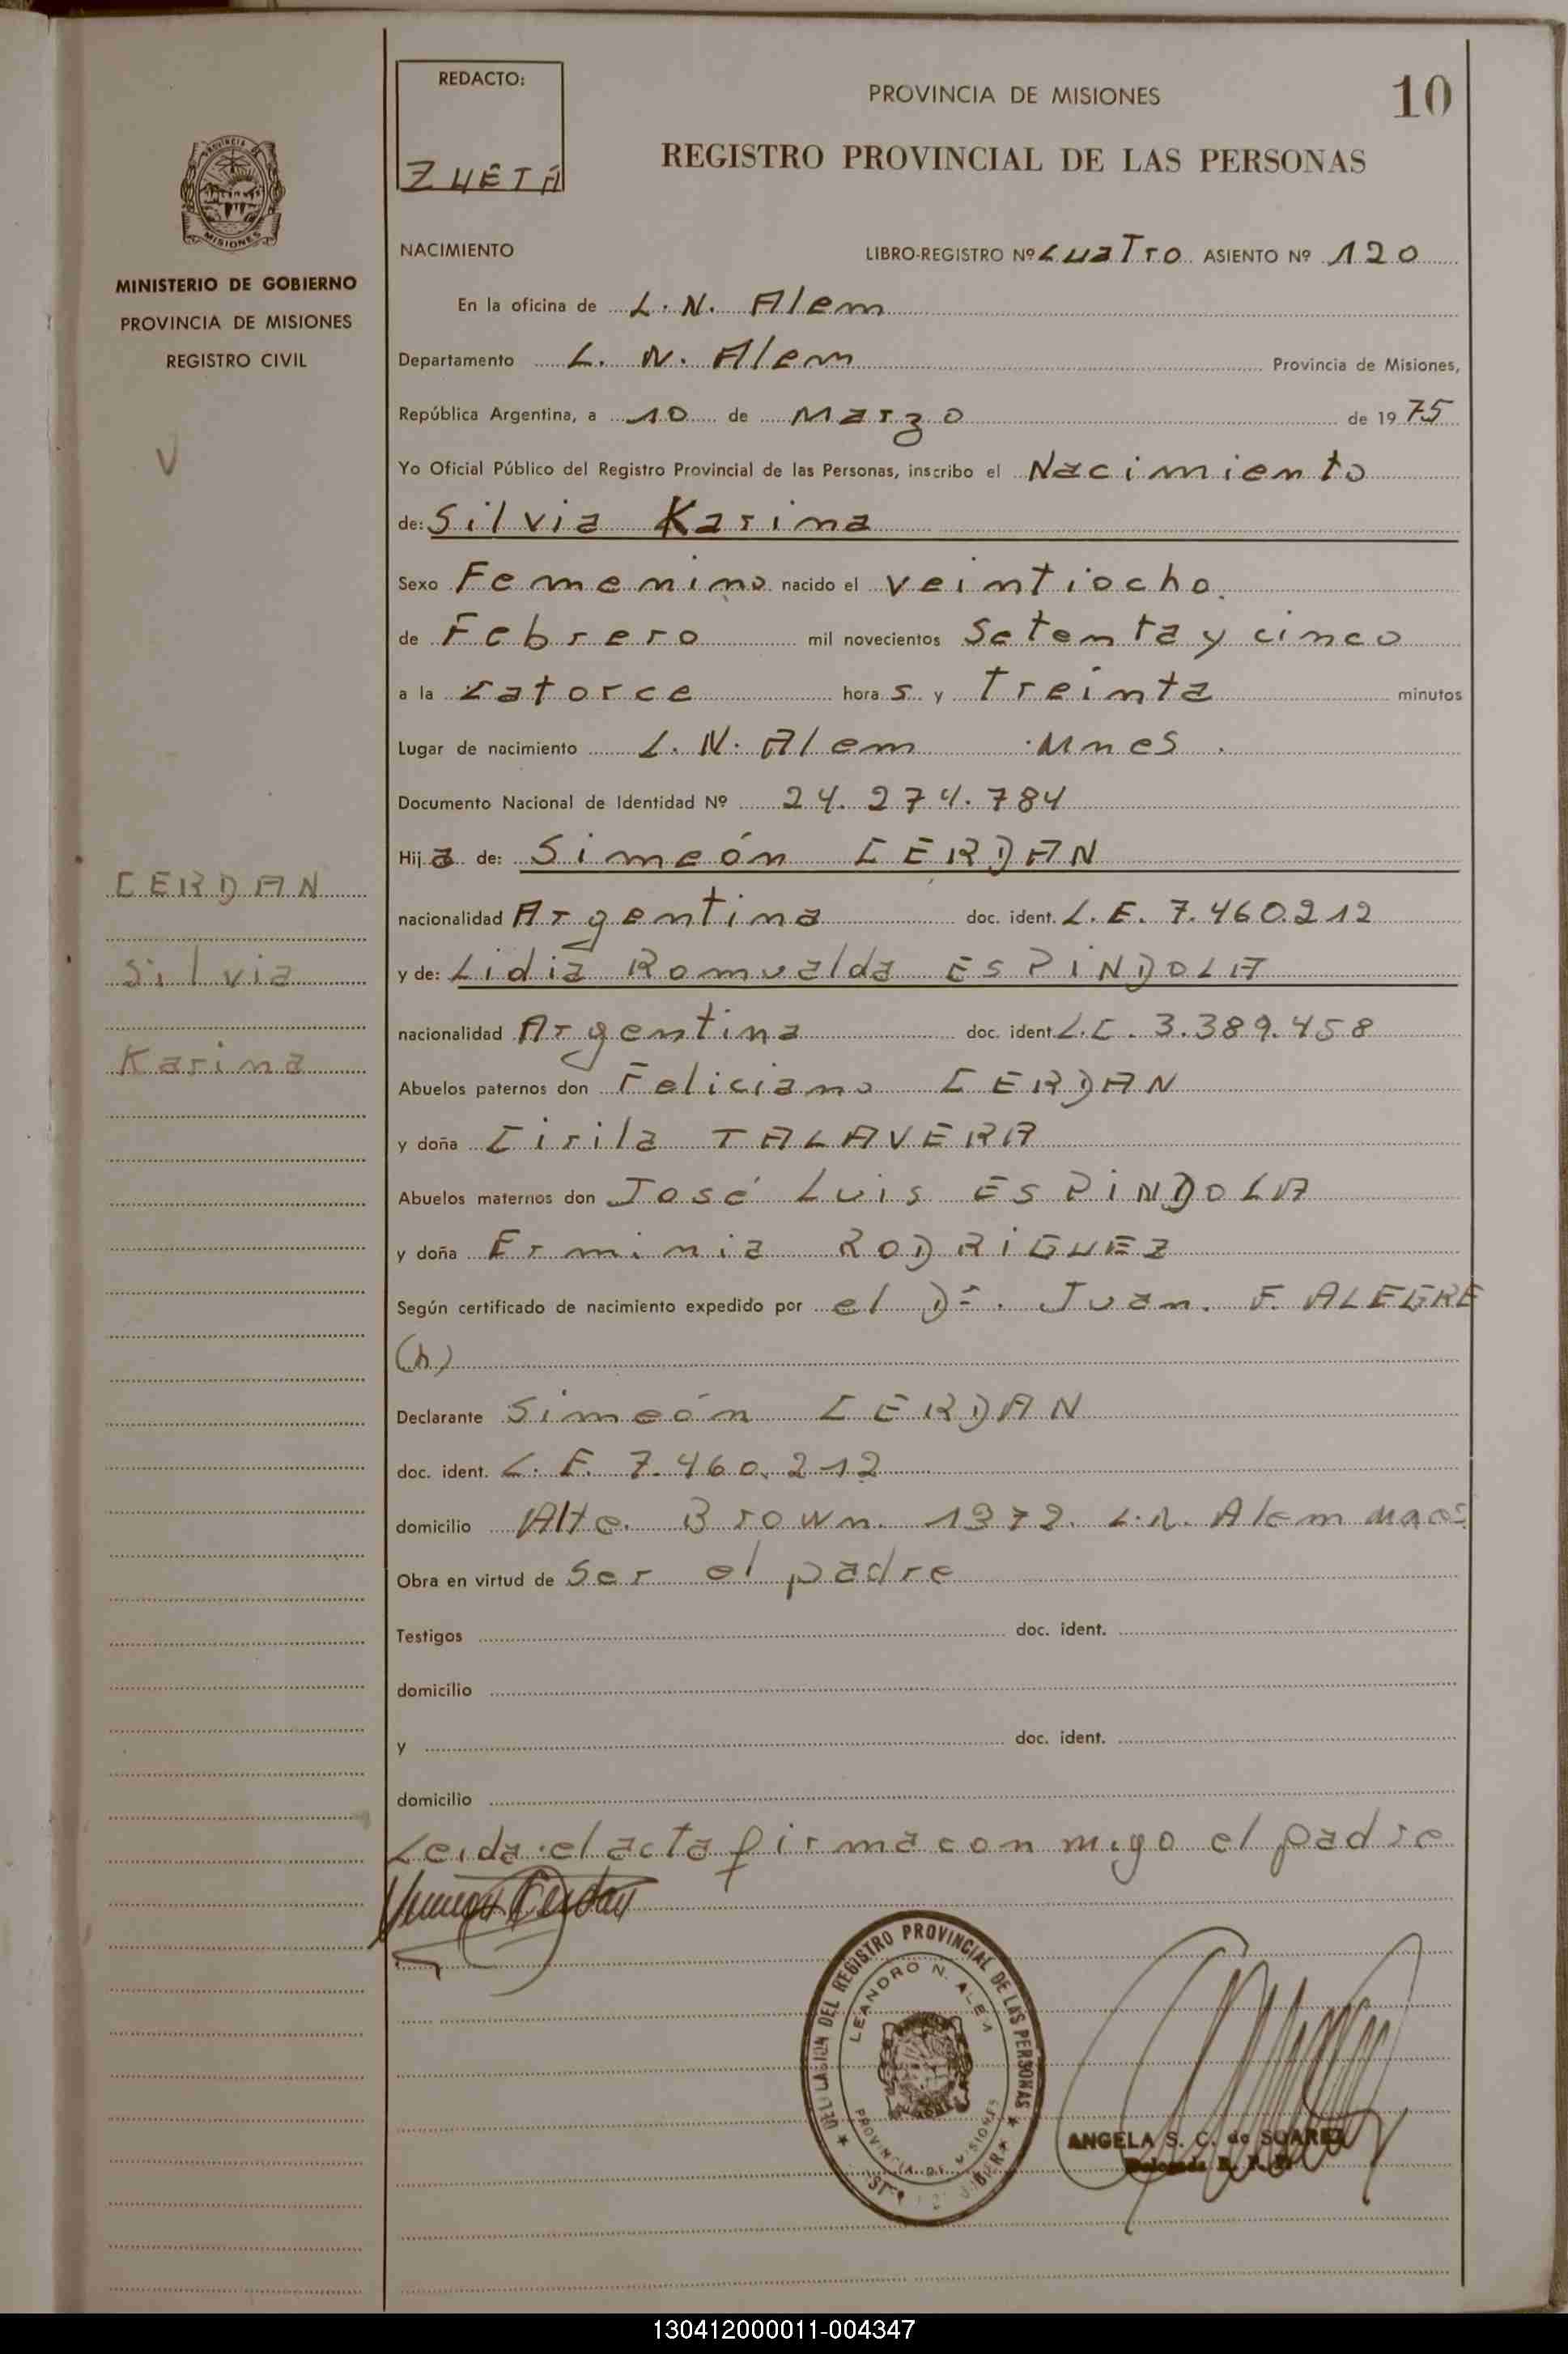 REDACTO:
ZUETA
PROVINCIA DE MISIONES
10
REGISTRO PROVINCIAL DE LAS PERSONAS
MISIONES
MINISTERIO DE GOBIERNO
PROVINCIA DE MISIONES
REGISTRO CIVIL
V
CERDAN
Silvia
Karina
NACIMIENTO LIBRO-REGISTRO Nº Cuatro ASIENTO Nº 120
En la oficina de L. N. Alem
Departamento L. N. Alem Provincia de Misiones,
República Argentina, a 10 de Marzo de 1975
Yo Oficial Público del Registro Provincial de las Personas, inscribo el Nacimiento
de: Silvia Karina
Sexo Femenino nacido el veintiocho
de Febrero mil novecientos Setenta y cinco
a la catorce hora s y Treinta minutos
Lugar de nacimiento L. N. Alem Mnes.
Documento Nacional de Identidad Nº 24.274.784
Hija de: Simeón CERDAN
nacionalidad Argentina doc. ident. L.E. 7.460.212
y de: Lidia Romualda ESPINDOLA
nacionalidad Argentina doc. ident. L.C. 3.389.458
Abuelos paternos don Feliciano CERDAN
y doña Cirila TALAVERA
Abuelos maternos don José Luis ESPINDOLA
y doña Erminia RODRIGUEZ
Según certificado de nacimiento expedido por el Dr. Juan. F. ALEGRE
(h)
Declarante Simeón CERDAN
doc. ident. L. E. 7.460.212
domicilio Alte. Brown. 1372. L.N. Alem Mnes
Obra en virtud de Ser el padre
Testigos doc. ident.
domicilio
y doc. ident.
domicilio
Leida el acta firma con migo el padre
DELEGACION DEL REGISTRO PROVINCIAL DE LAS PERSONAS
LEANDRO N. ALEM
PROVINCIA DE MISIONES
ANGELA S. C. de SUAREZ
130412000011-004347